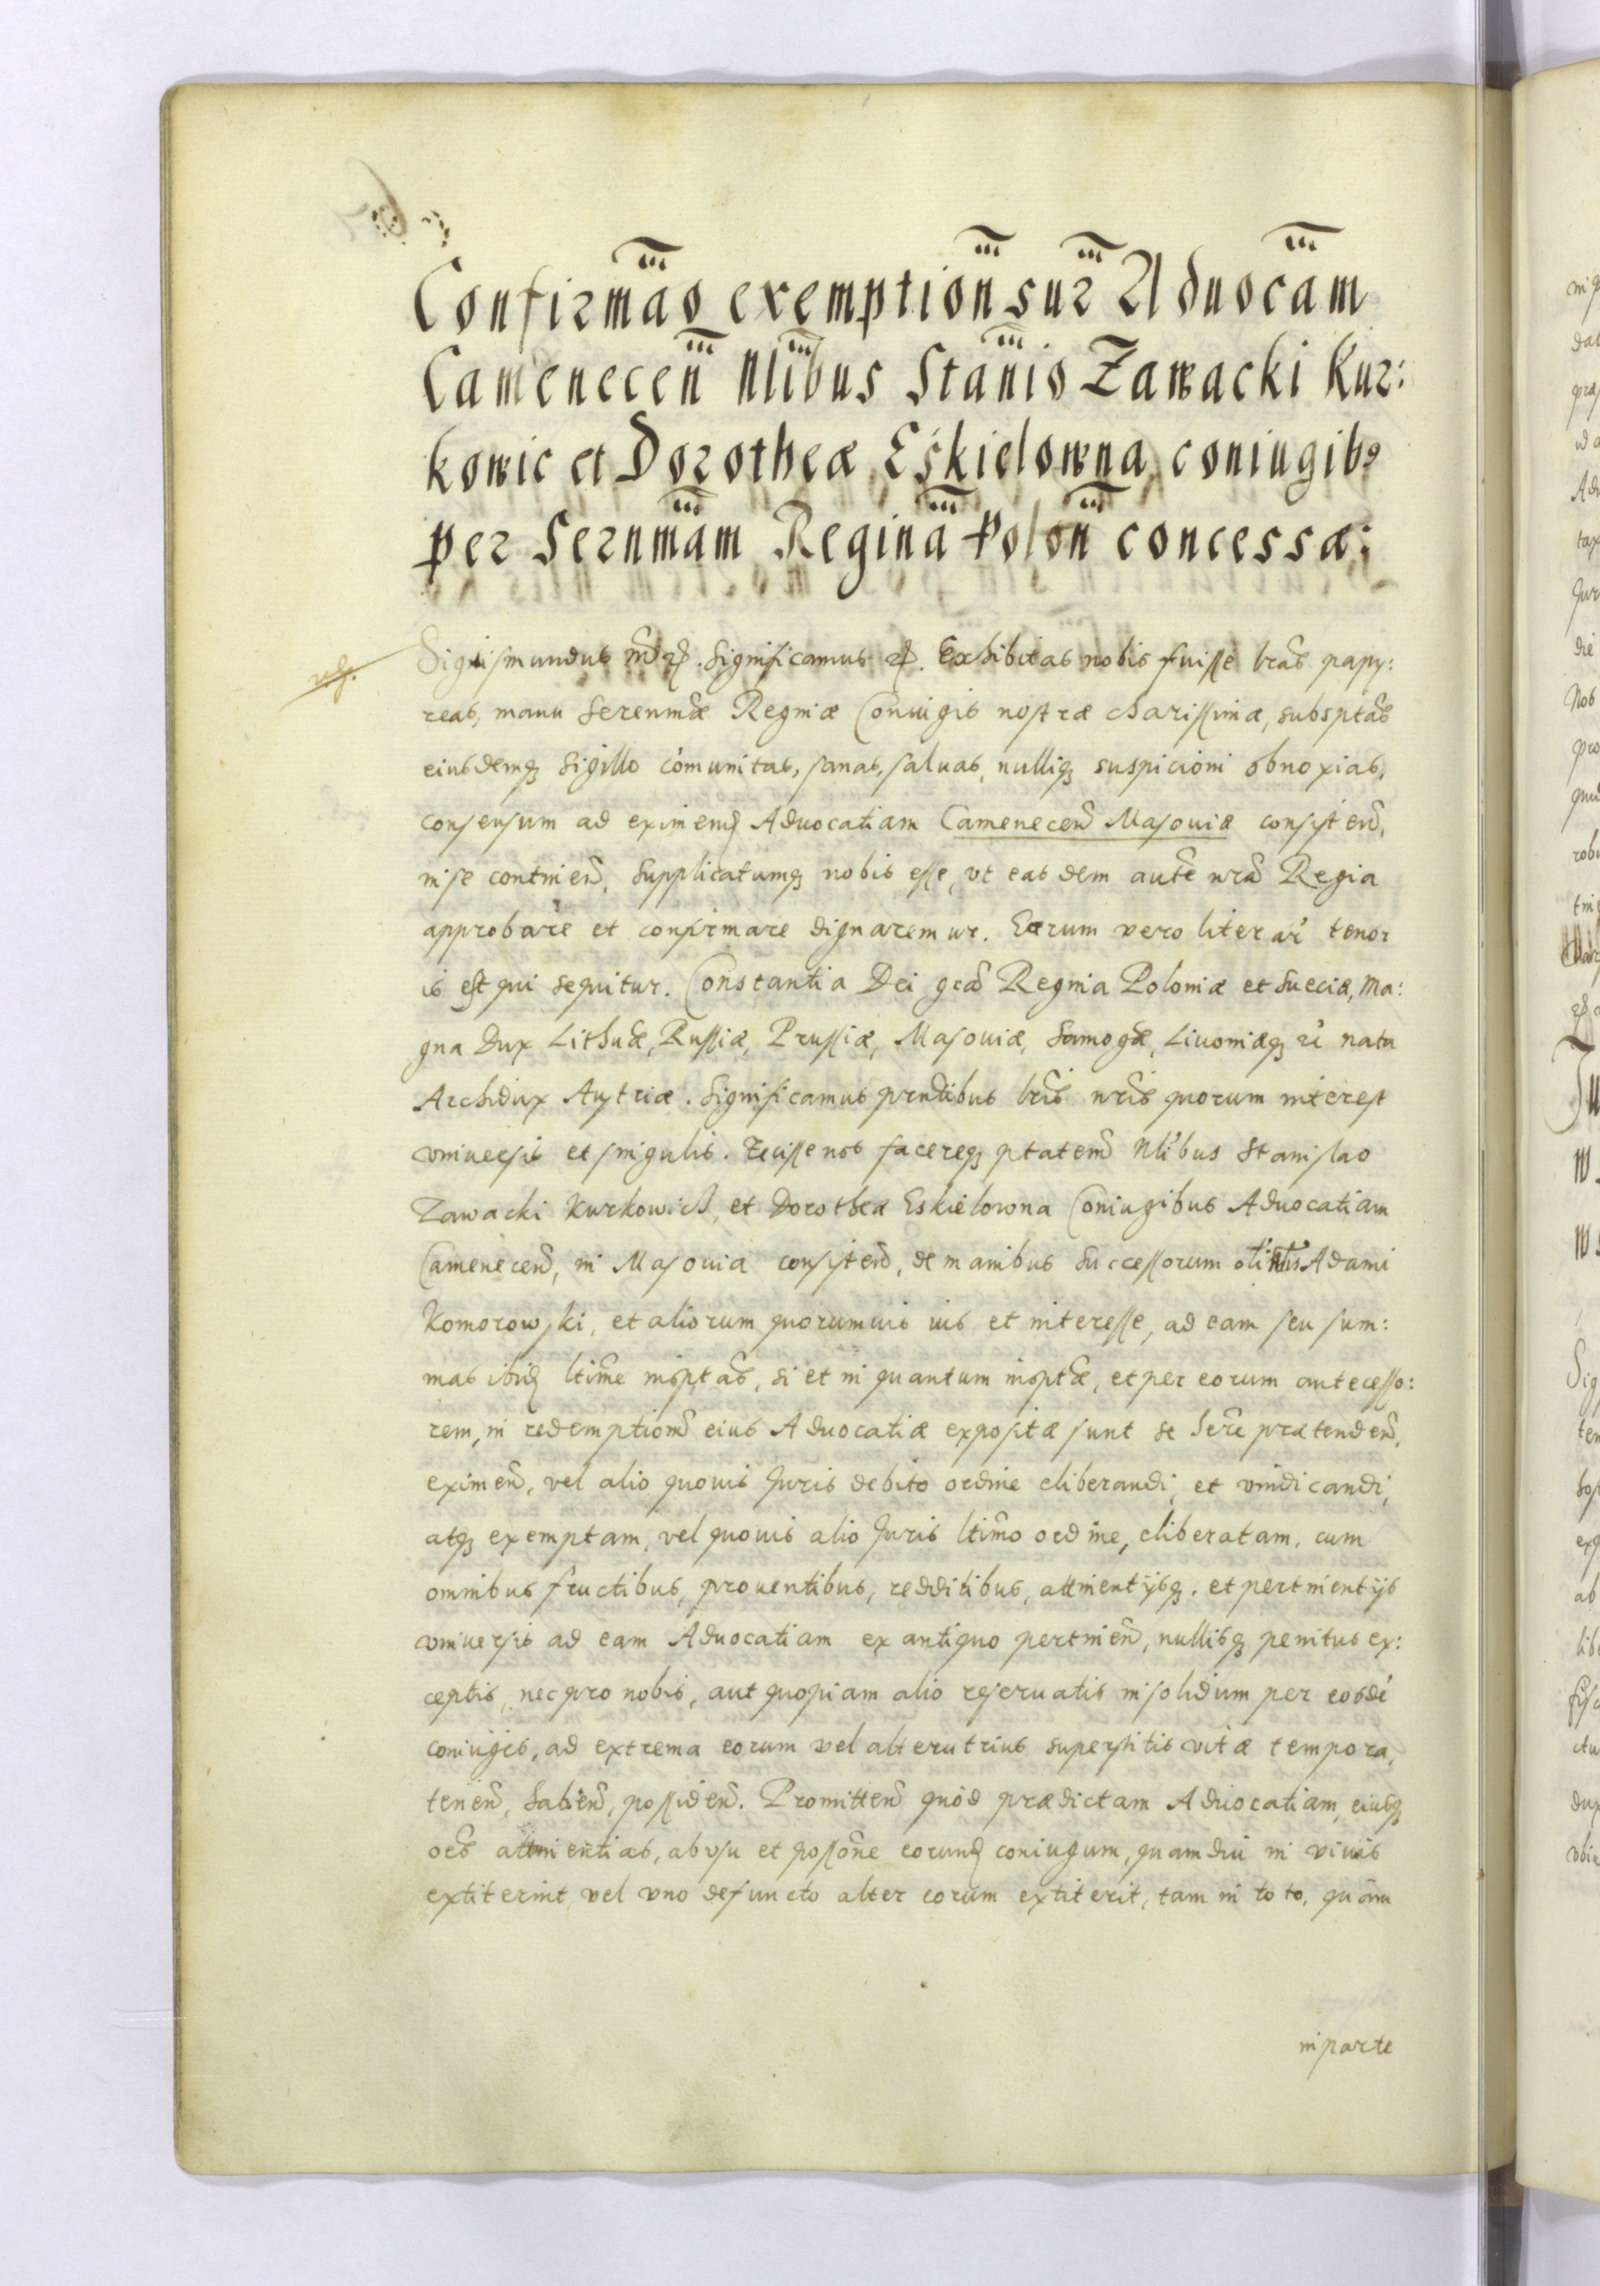 Confirmão exemption̄ sup̄ Aduocãm
Camenecen̄ Nlĩbus Stanĩo Zawacki Kur:
kowic et Dorotheæ Eskielowna coniugibꝫ
per Sernmãm Reginã Polon̄ concessæ;
Sigismundus . Significamus . Exhibitas nobis fuisse lrãs papy:
reas, manu Serenmæ̃ Reginæ Coniugis nostræ charissimæ, subsptãs
eiusdemqꝫ sigillo cõmunitas, sanas, saluas, nulliqꝫ suspicioni obnoxias,
consensum ad eximend Aduocatiam Camenecen̄ Masouiæ consisten̄,
in se continen̄, Supplicatumqꝫ nobis esse, vt eas dem autẽ nrã Regia
approbare et confirmare dignaremur. Earum vero literar̃ tenor
is est qui sequitur. Constantia Dei grã Regina Poloniæ et Sueciæ, Ma:
gna Dux Lithuæ̃, Russiæ, Prussiæ, Masouiæ, Samogæ̃, Liuoniæqꝫ rẽ nata
Archidux Austriæ. Significamus prntĩbus lrĩs nrĩs quorum interest
vniuersis et singulis. Fecisse nos facereqꝫ ptatem̃ Nlĩbus Stanislao
Zawacki Kurkowich, et Dorotheæ Eskielowna Coniugibus Aduocatiam
Camenecen̄, in Masouia consisten̄, de manibus Successorum olim Adami
Komorowski, et aliorum quorumuis ius et interesse, ad eam seu sum:
mas ibid ltĩme insptãs, si et in quantum insptæ̃, et per eorum antecesso:
rem, in redemption̄ eius Aduocatiæ expositæ sunt se herẽ prætenden̄,
eximen̄, vel alio quouis Juris debito ordine eliberandi, et vindicandi,
atqꝫ exemptam, vel quouis alio Juris ltĩmo ordine, eliberatam, cum
omnibus fructibus, prouentibus, redditibus, attinentijsqꝫ. et pertinentijs
vniuersis ad eam Aduocatiam ex antiquo pertinen̄, nullisqꝫ penitus ex:
ceptis, nec pro nobis, aut quopiam alio reseruatis in solidum per eosdẽ
coniuges, ad extrema eorum vel alterutrius superstitis vitæ tempora,
tenen̄, haben̄, possiden̄. Promitten̄ quòd prædictam Aduocatiam, eiusqꝫ
oẽs attinentias, ab vsu et possõne eorund coniugum, quamdiu in viuis
extiterint, vel vno defuncto alter eorum extiterit, tam in toto, quàm
in parte